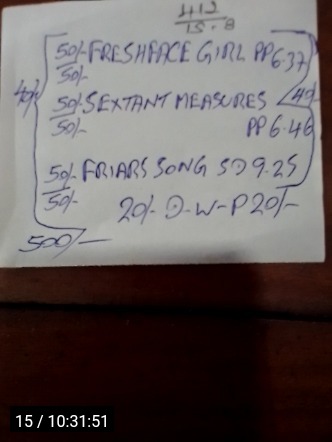 412
15.8
50/- FRESHFACE GIRL PP 6.37
50/-
50/- SEXTANT MEASURES
50/- PP 6.46
50/- FRIARS SONG SD 9.25
50/-
20/- D-W-P 20/-
500/-
15 / 10:31:51